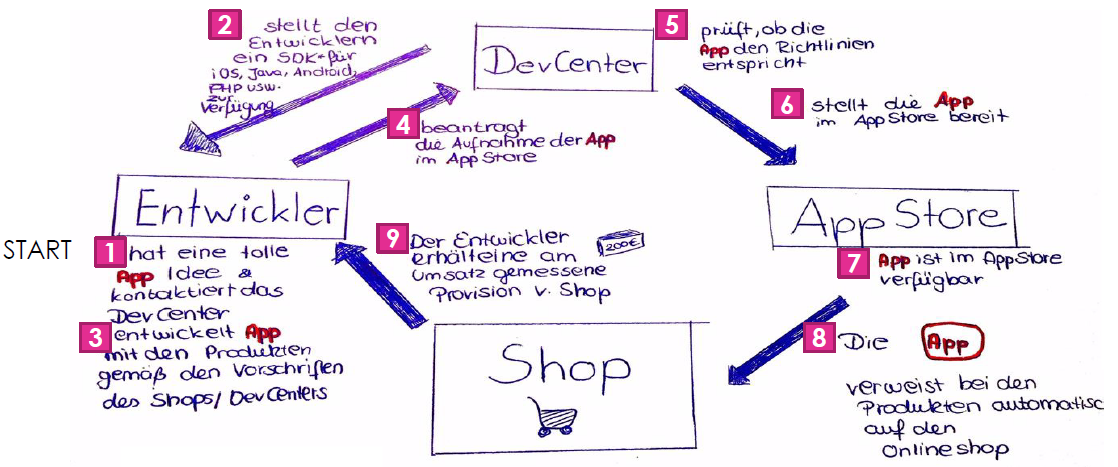 START
1 hat eine tolle
App Idee &
kontaktiert das
DevCenter
2 stellt den
Entwicklern
ein SDK* für
iOS, Java, Android,
PHP usw.
zur
Verfügung
3 entwickelt App
mit den Produkten
gemäß den Vorschriften
des Shops/DevCenters
Entwickler
4 beantragt
die Aufnahme der App
im AppStore
DevCenter
5 prüft, ob die
App den Richtlinien
entspricht
6 stellt die App
im AppStore bereit
App Store
7 App ist im AppStore
verfügbar
8 Die App
verweist bei den
Produkten automatisc
auf den
Onlineshop
Shop
9 Der Entwickler
erhält eine am
Umsatz gemessene
Provision v. Shop
200€